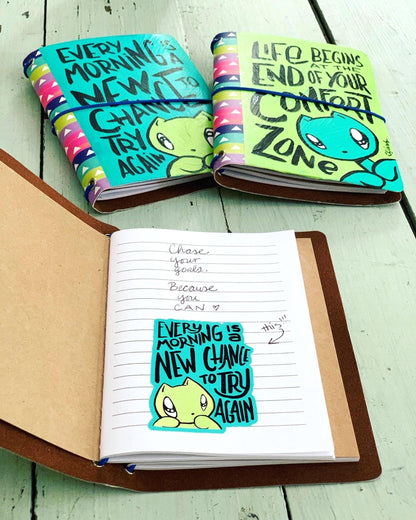 EVERY IS
MORNING A
NEW
CHANCE TO
TRY
AGAIN
LIFE BEGINS
AT THE
END OF YOUR
COMFORT
ZONE
Chase
your
goals.
Because
you
CAN ♡
this!!!
EVERY IS
MORNING A
NEW CHANCE
TO TRY
AGAIN